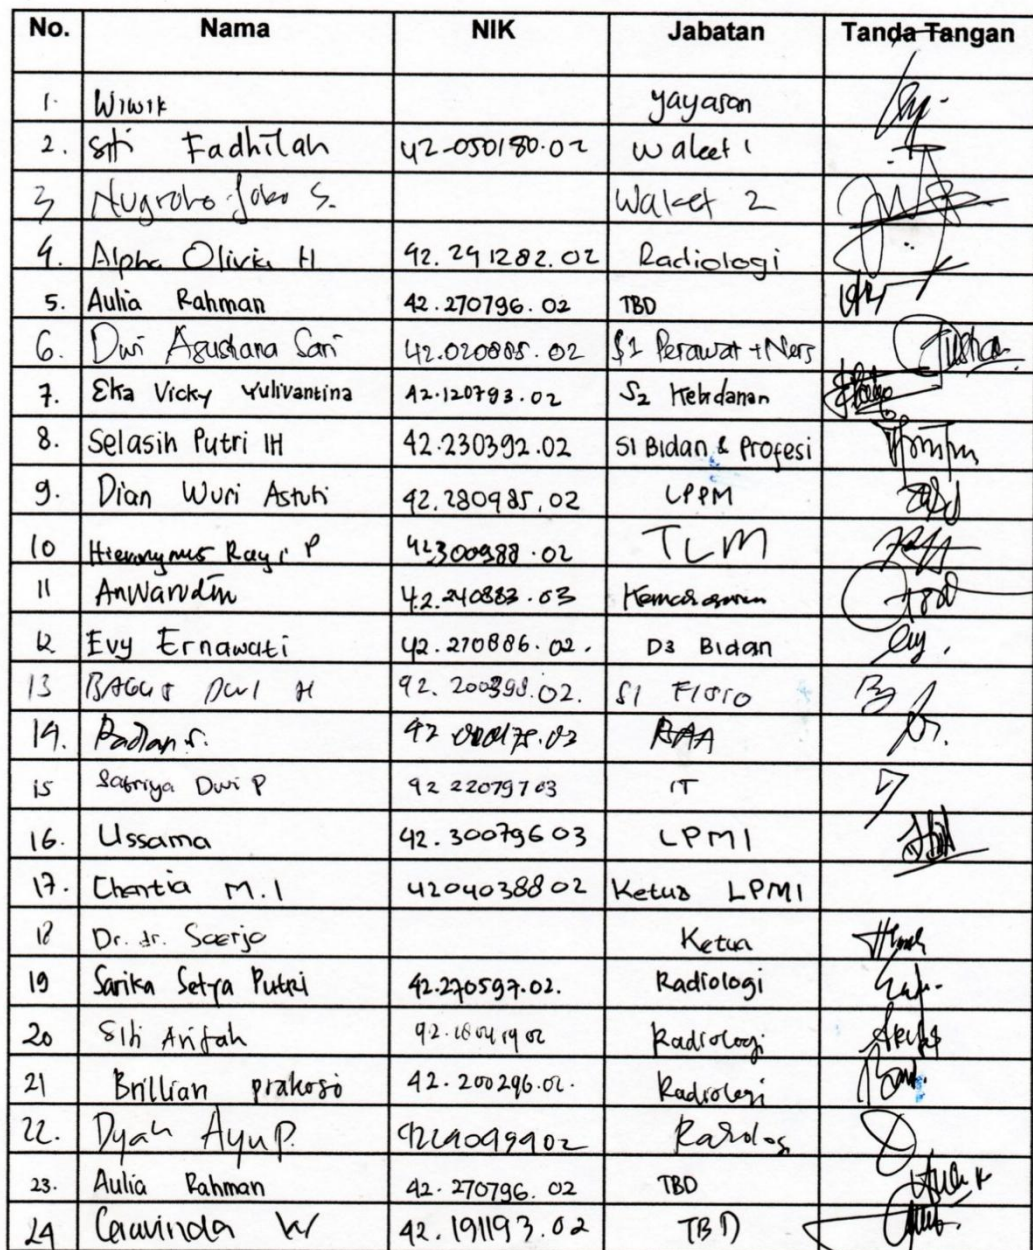 No. Nama NIK Jabatan Tanda Tangan
1. Wiwik yayasan
2. Siti Fadhilah 42-050180.02 Waket 1
3 Nugroho Joko S. Waket 2
4. Alpha Olivia H 42.241282.02 Radiologi
5. Aulia Rahman 42.270796.02 TBD
6. Dwi Agustiana Sari 42.020885.02 S1 Perawat + Ners
7. Eka Vicky Yulivantina 42.120793.02 S2 Kebidanan
8. Selasih Putri IH 42.230392.02 S1 Bidan & Profesi
9. Dian Wuri Astuti 42.280985.02 LPPM
10 Hieronymus Rayi P 42300988.02 TLM
11 Anwarudin 42.240883.03
12 Evy Ernawati 42.270886.02. D3 Bidan
13 BAGUS DWI H 42.200898.02. S1 FISIO
14. BAA
15 Satriya Dwi P 42 22079703 IT
16. Ussama 42.30079603 LPMI
17. Chentia M.I 4204038802 Ketua LPMI
18 Dr. dr. Soerjo Ketua
19 Sarika Setya Putri 42.270597.02. Radiologi
20 Siti Arifah Radiologi
21 Brillian prakoso 42.200296.02. Radiologi
22. Dyah Ayu P.
23. Aulia Rahman 42.270796.02 TBD
24 Ceravinda W 42.191193.02 TBD